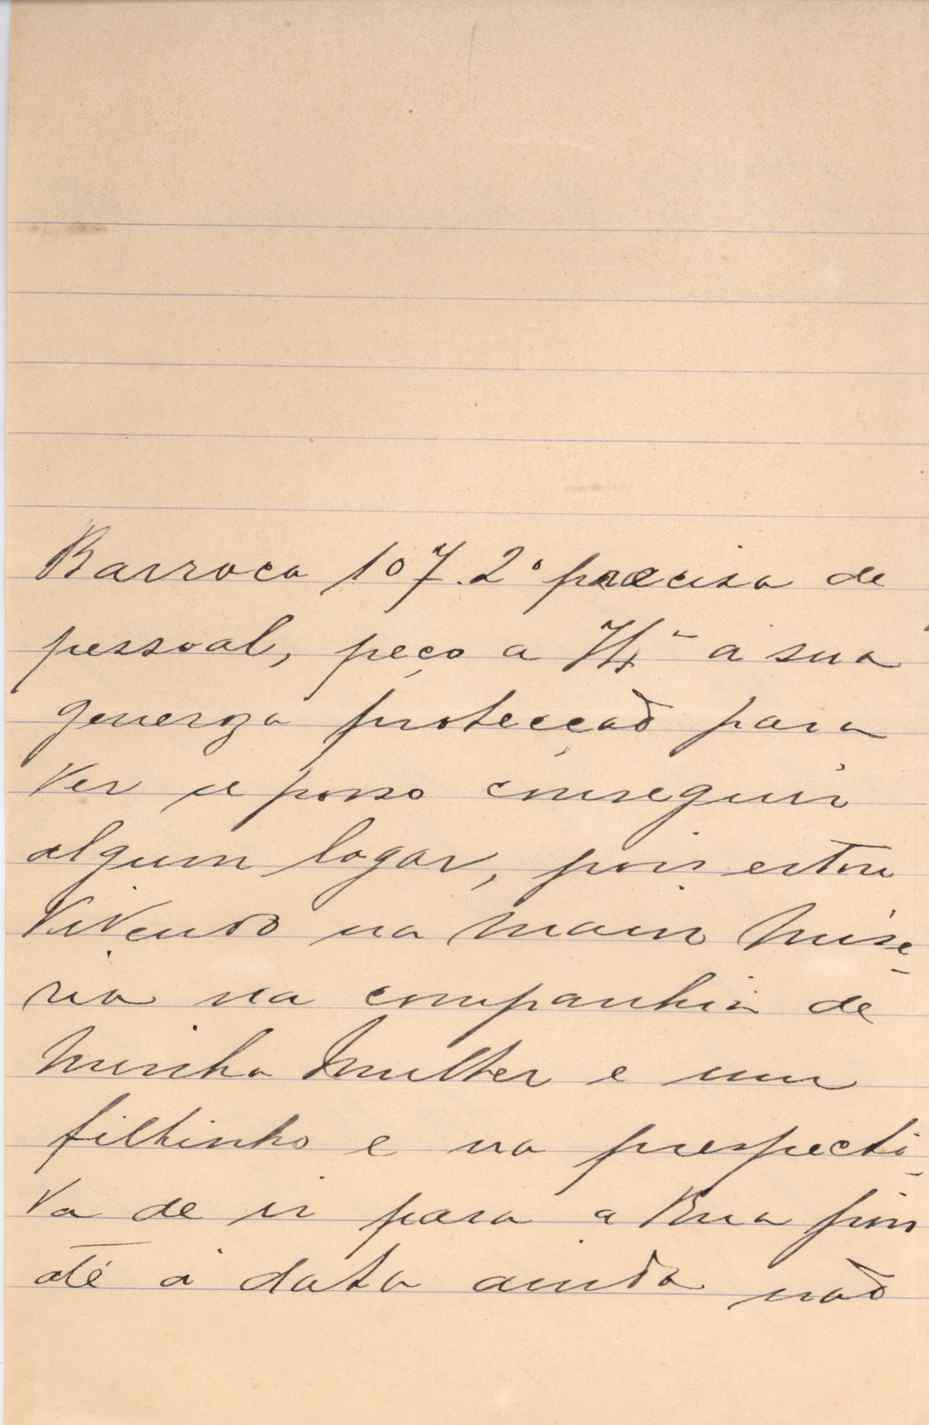 Barroca 107. 2º precisa de
pessoal, peço a V. Exª a sua
generoza protecçaõ para
ver se posso conseguir
algum logar, pois estou
vivendo na maior mise-
ria na companhia de
minha mulher e um
filhinho e na prespecti-
va de ir para a Rua pois
até á data ainda naõ